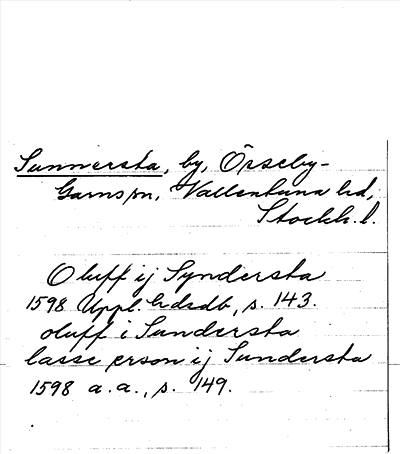 Sunnersta, by, Össeby-
Garns sn, Vallentuna hd,
Stockh. l.
Oluff ij Syndersta
1598 Uppl. hdsdb, s. 143.
oluff i Sundersta
lasse erson ij Sundersta
1598 a. a., s. 149.